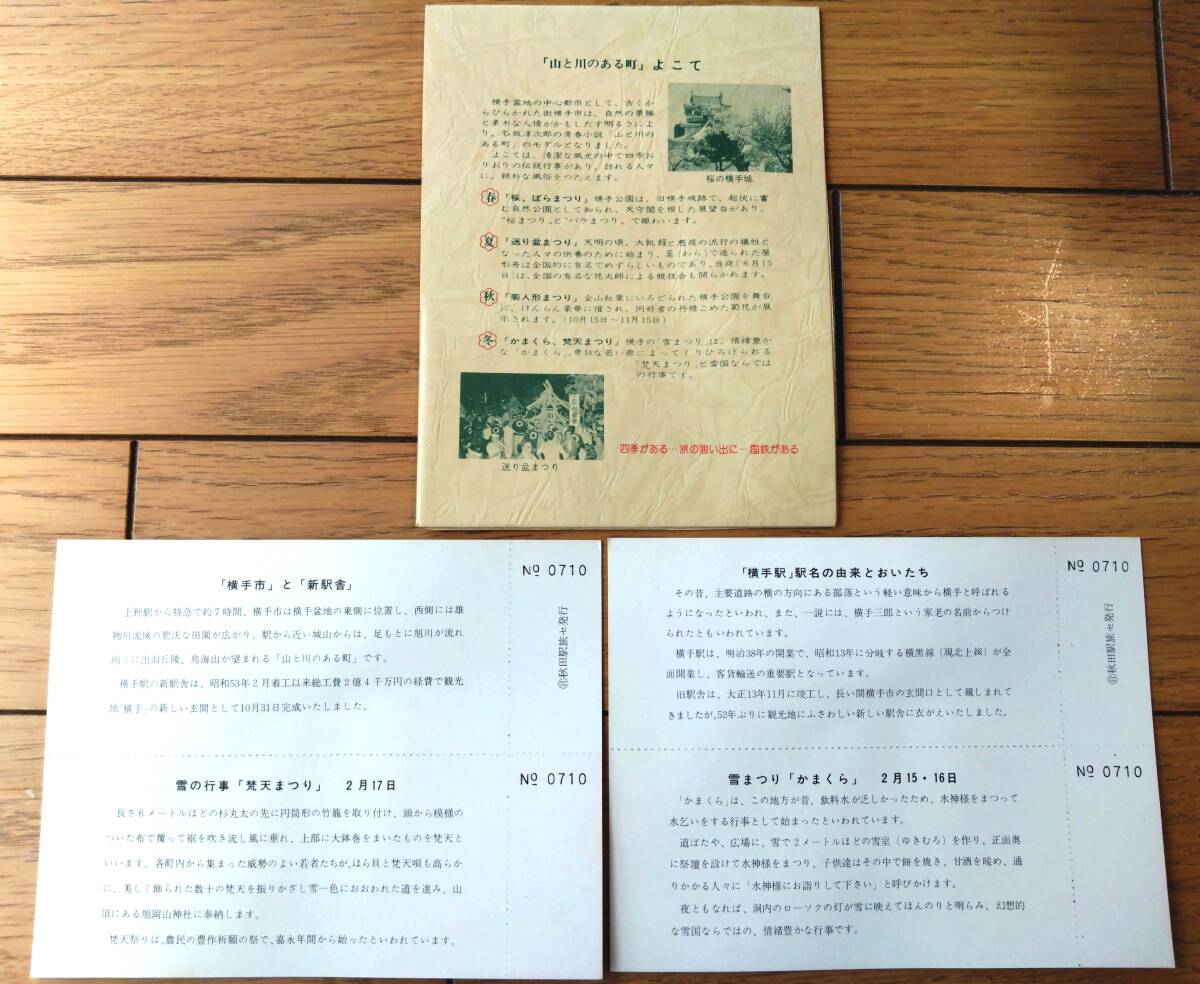 「山と川のある町」よこて
横手盆地の中心都市として、古くか
らひらかれた街横手市は、自然の景勝
と素朴な人情がかもしだす明るさによ
り。石坂洋次郎の青春小説「山と川の
ある町」のモデルとなりました。
よこては、清潔な風光の中で四季お
りおりの伝統行事があり、訪れる人々
に。純朴な風俗をつたえます。
桜の横手城
春 「桜、ばらまつり」横手公園は、旧横手城跡で、起伏に富
む自然公園として知られ、天守閣を模した展望台があり、
"桜まつり〟と"バラまつり〟で賑わいます。
夏 「送り盆まつり」天明の頃、大飢饉と悪疫の流行の犠牲と
なった人々の供養のために始まり、藁(わら)で造られた屋
形舟は全国的に有名でめずらしいものであり、当夜(8月15
日)は、全国の有名な花火師による競技会も開らかれます。
秋 「菊人形まつり」全山紅葉にいろどられた横手公園を舞台
に、けんらん豪華に催され、同好者の丹精こめた菊花が展
示されます。(10月15日〜11月15日)
冬 「かまくら、梵天まつり」横手の「雪まつり」は、情緒豊か
な「かまくら」、勇壮な若い衆によってくりひろげられる
「梵天まつり」と雪国ならでは
の行事です。
送り盆まつり
四季がある…旅の思い出に…国鉄がある
「横手市」と「新駅舎」
No 0710
上野駅から特急で約7時間、横手市は横手盆地の東側に位置し、西側には雄
物川流域の肥沃な田園が広がり、駅から近い城山からは、足もとに旭川が流れ
向うに出羽丘陵、鳥海山が望まれる「山と川のある町」です。
横手駅の新駅舎は、昭和53年2月着工以来総工費2億4千万円の経費で観光
地「横手」の新しい玄関として10月31日完成いたしました。
秋田駅旅セ発行
雪の行事「梵天まつり」 2月17日
No 0710
長さ6メートルほどの杉丸太の先に円筒形の竹籠を取り付け、頭から模様の
ついた布で覆って裾を吹き流し風に垂れ、上部に大鉢巻をまいたものを梵天と
いいます。各町内から集まった威勢のよい若者たちが、ほら貝と梵天唄も高らか
に、美しく飾られた数十の梵天を振りかざし雪一色におおわれた道を進み、山
頂にある旭岡山神社に奉納します。
梵天祭りは、農民の豊作祈願の祭で、嘉永年間から始ったといわれています。
「横手駅」駅名の由来とおいたち
No 0710
その昔、主要道路の横の方向にある部落という軽い意味から横手と呼ばれる
ようになったといわれ、また、一説には、横手三郎という家老の名前からつけ
られたともいわれています。
横手駅は、明治38年の開業で、昭和13年に分岐する横黒線(現北上線)が全
面開業し、客貨輸送の重要駅となっています。
旧駅舎は、大正13年11月に竣工し、長い間横手市の玄関口として親しまれて
きましたが、52年ぶりに観光地にふさわしい新しい駅舎に衣がえいたしました。
秋田駅旅セ発行
雪まつり「かまくら」 2月15・16日
No 0710
「かまくら」は、この地方が昔、飲料水が乏しかったため、水神様をまつって
水乞いをする行事として始まったといわれています。
道ばたや、広場に、雪で2メートルほどの雪室(ゆきむろ)を作り、正面奥
に祭壇を設けて水神様をまつり、子供達はその中で餅を焼き、甘酒を暖め、通
りかかる人々に「水神様にお詣りして下さい」と呼びかけます。
夜ともなれば、洞内のローソクの灯が雪に映えてほんのりと明らみ、幻想的
な雪国ならではの、情緒豊かな行事です。